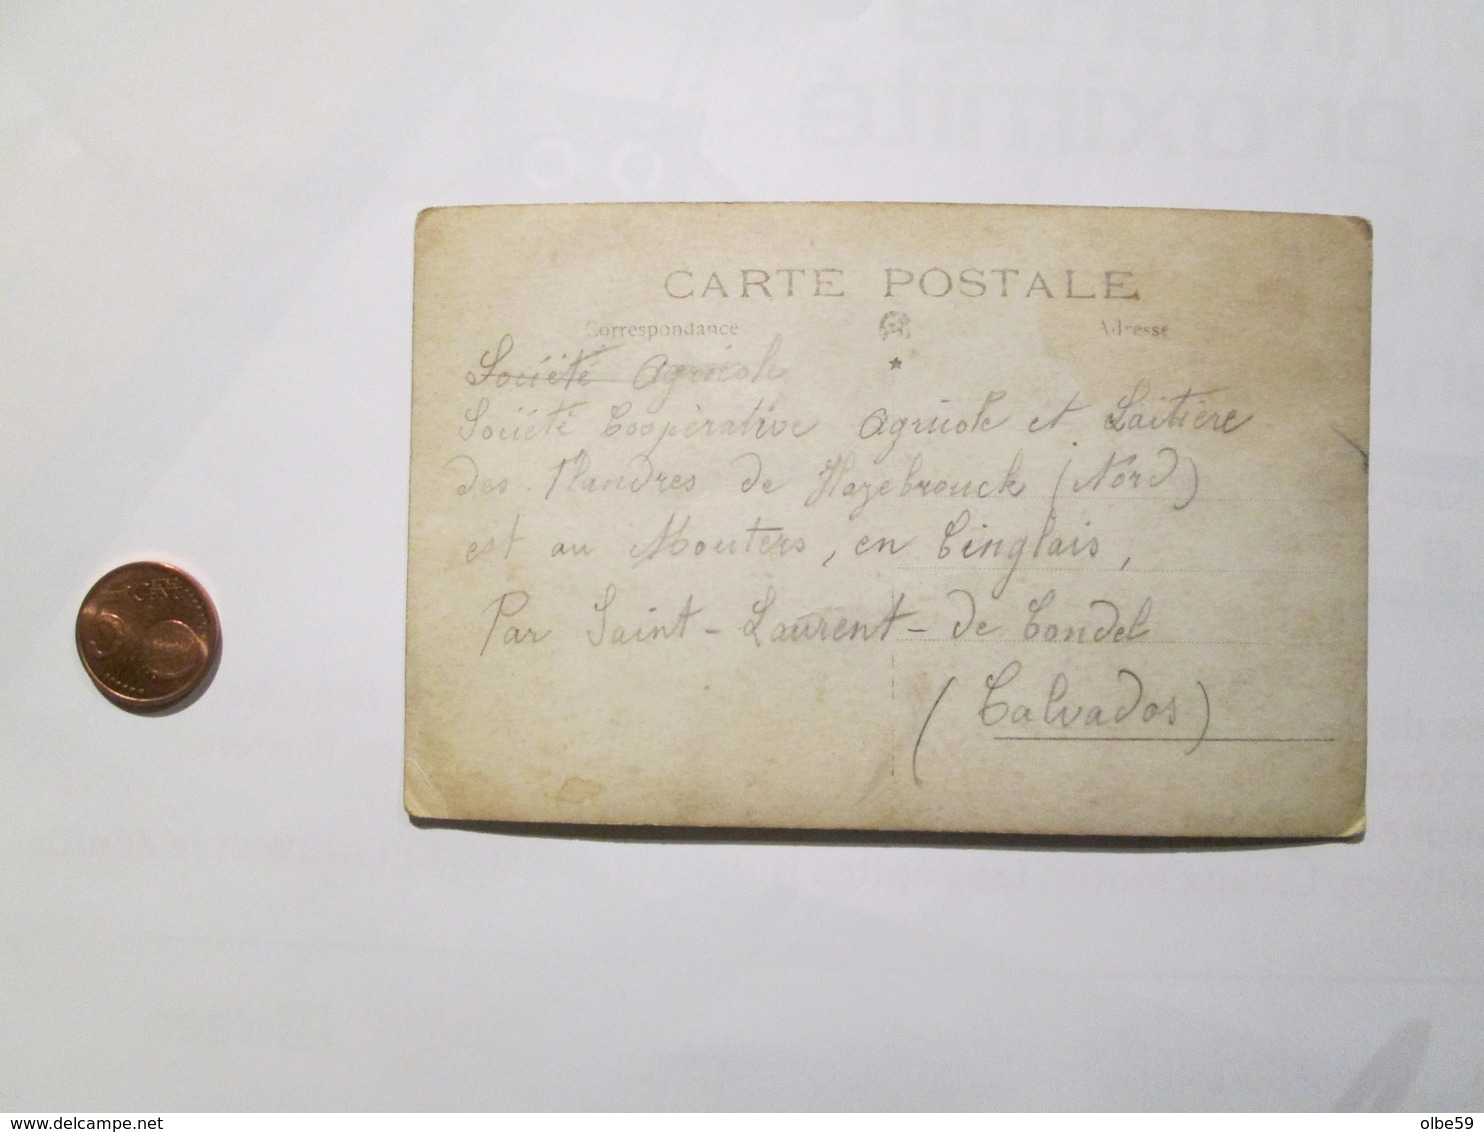 CARTE POSTALE
Correspondance
Adresse
Société Agricole
Société Coopérative Agricole et Laitière
des Flandres de Hazebrouck (Nord)
est au Mouters, en Cinglais,
Par Saint-Laurent-de Condel
(Calvados)
olbe59